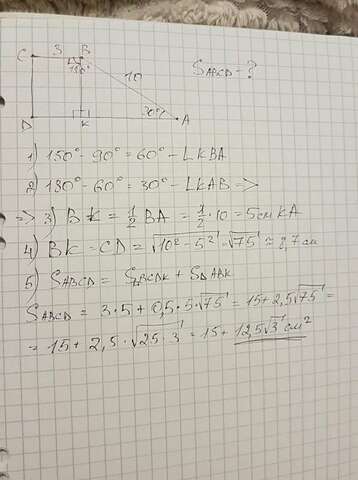 C 3 B
150°
10
S ABCD = ?
30°
D K A
1) 150° - 90° = 60° - LKBA
2) 180° - 60° = 30° - LKAB =>
=> 3) BK = 1/2 BA = 1/2 · 10 = 5 cm KA
4) BK = CD = √10² - 5² = √75 ≈ 8,7 см
5) S ABCD = S BCDK + S ABK
S ABCD = 3 · 5 + 0,5 · 5 · √75 = 15 + 2,5√75 =
= 15 + 2,5 · √25 · 3 = 15 + 12,5√3 см²